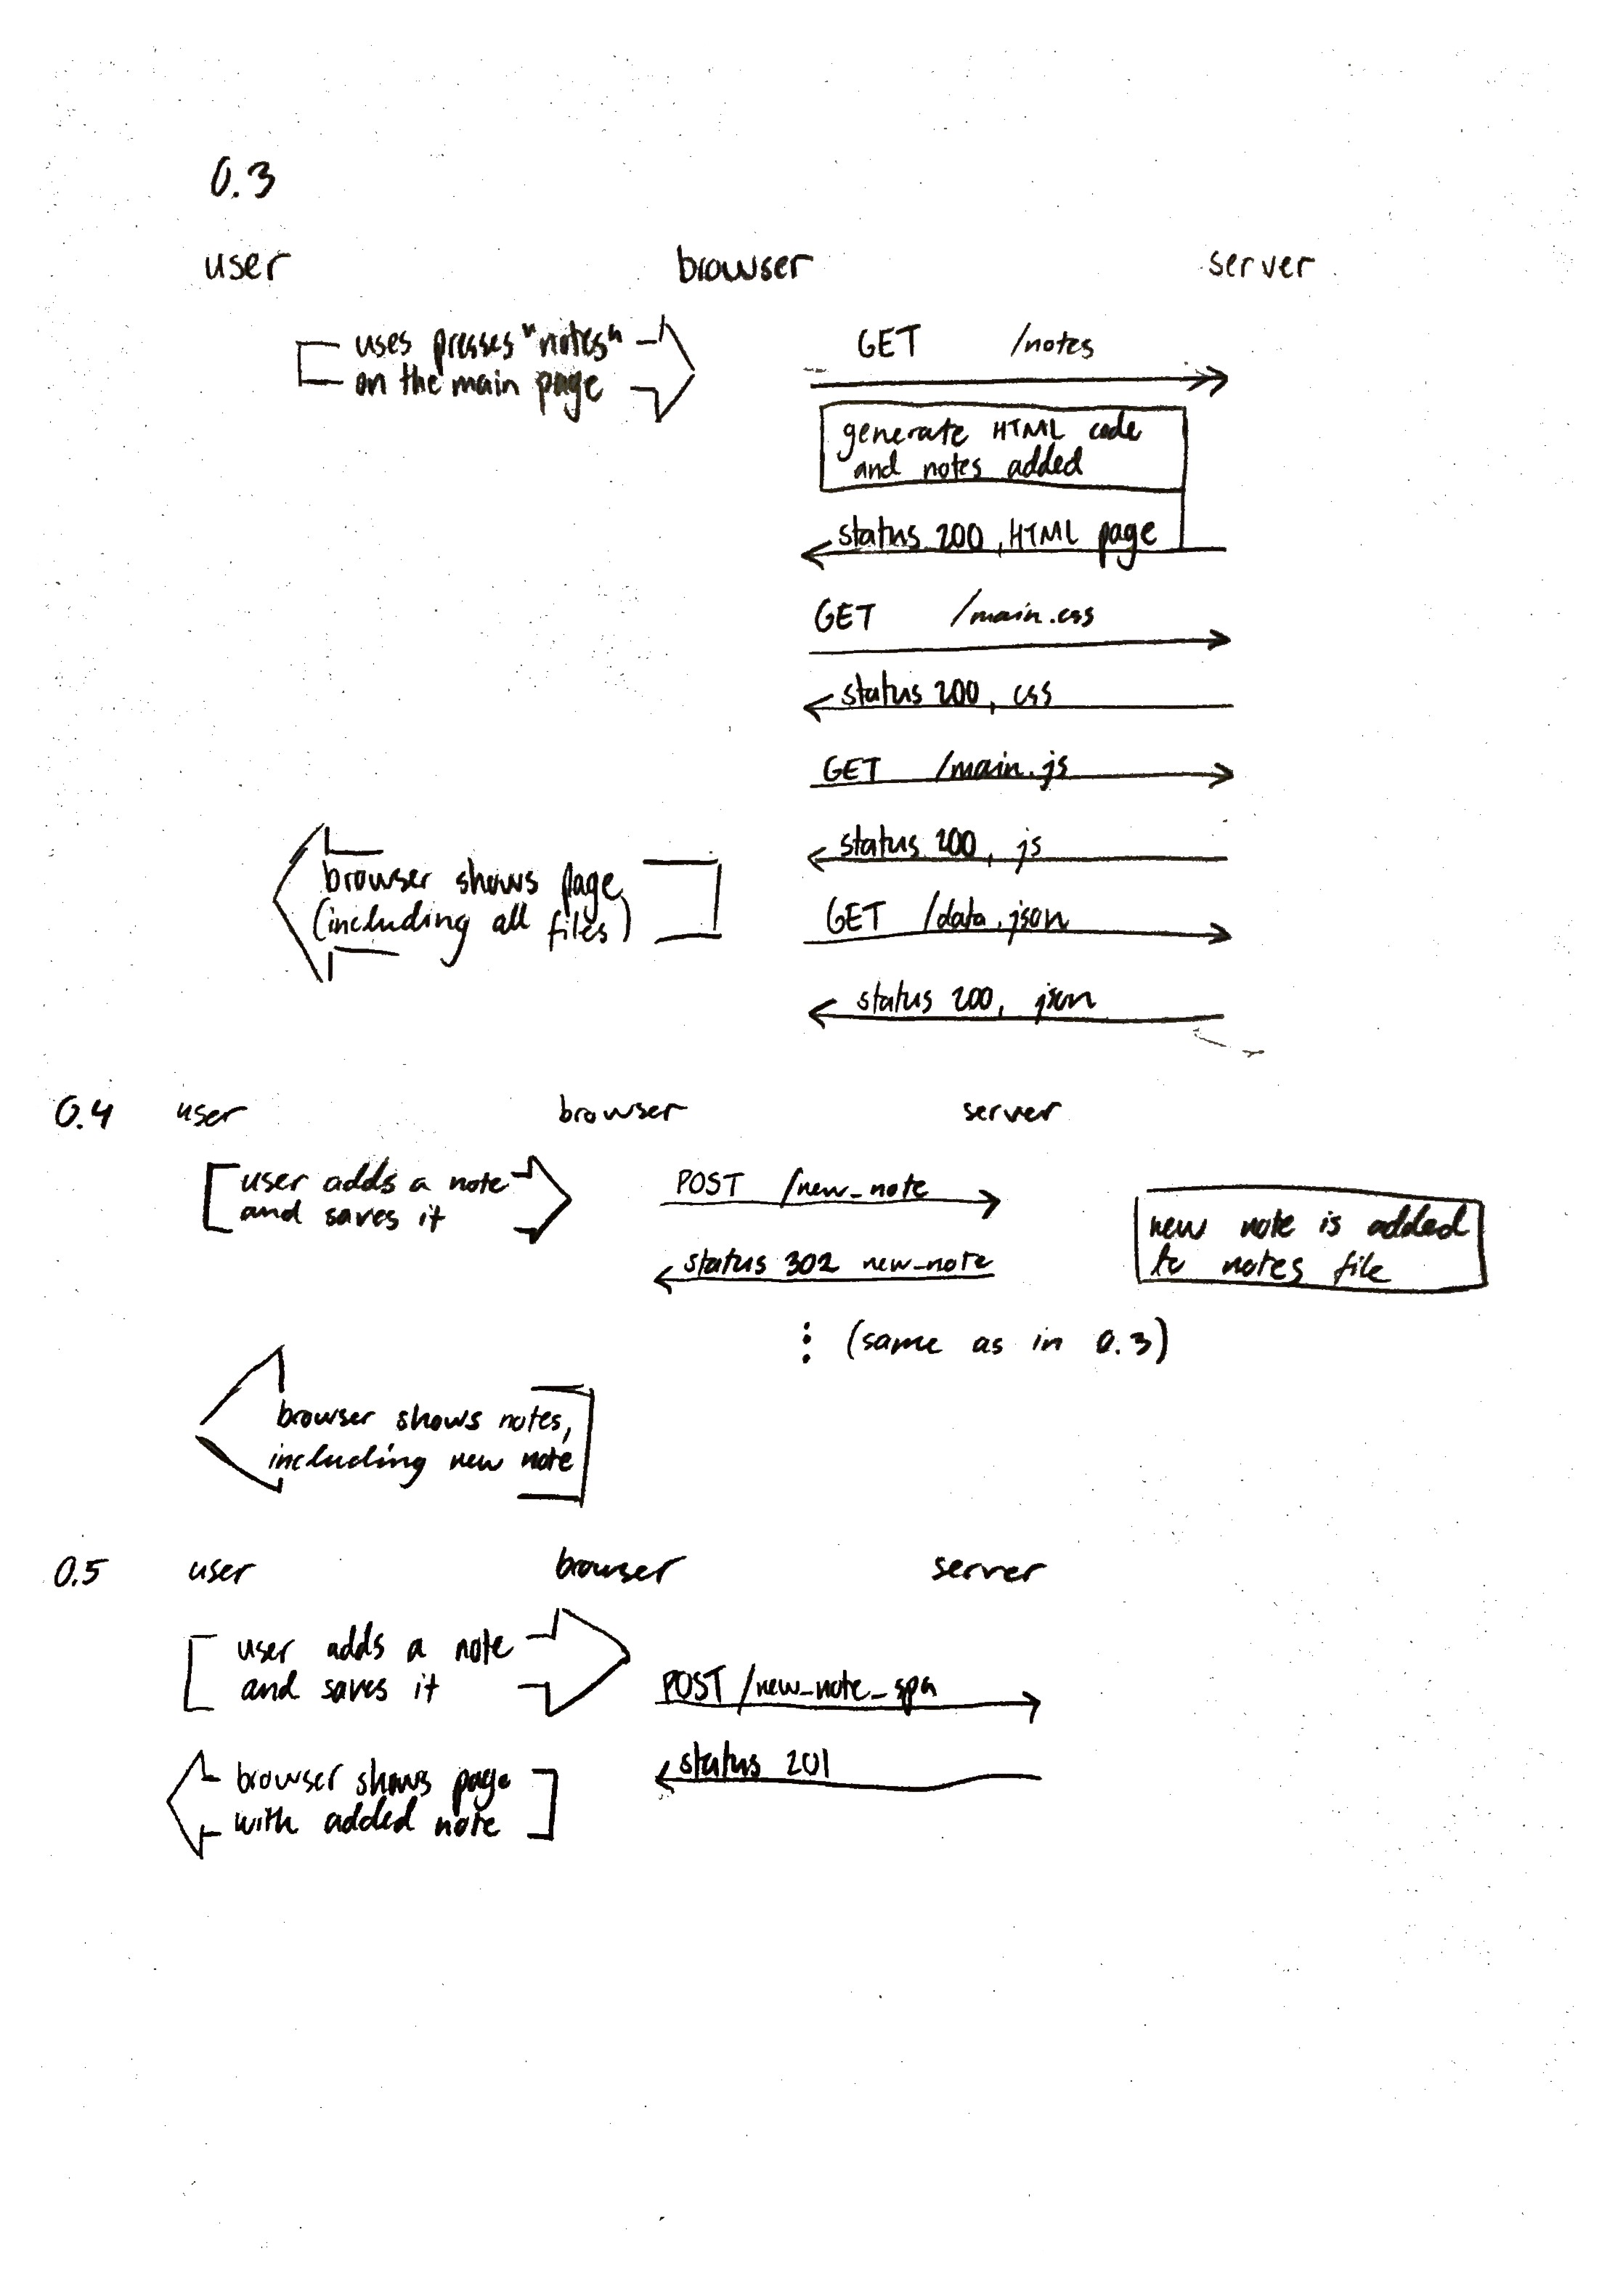 0.3
user browser server
uses presses "notes"
on the main page
GET /notes
generate HTML code
and notes added
status 200, HTML page
GET /main.css
status 200, css
GET /main.js
status 200, js
browser shows page
(including all files)
GET /data.json
status 200, json
0.4 user browser server
user adds a note
and saves it
POST /new_note
new note is added
to notes file
status 302 new_note
(same as in 0.3)
browser shows notes,
including new note
0.5 user browser server
user adds a note
and saves it
POST /new_note_spa
status 201
browser shows page
with added note